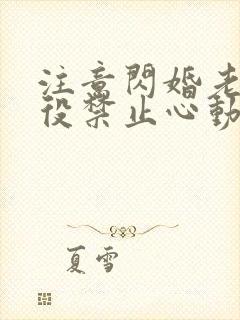 注意閃婚老
役禁止心動
夏雪